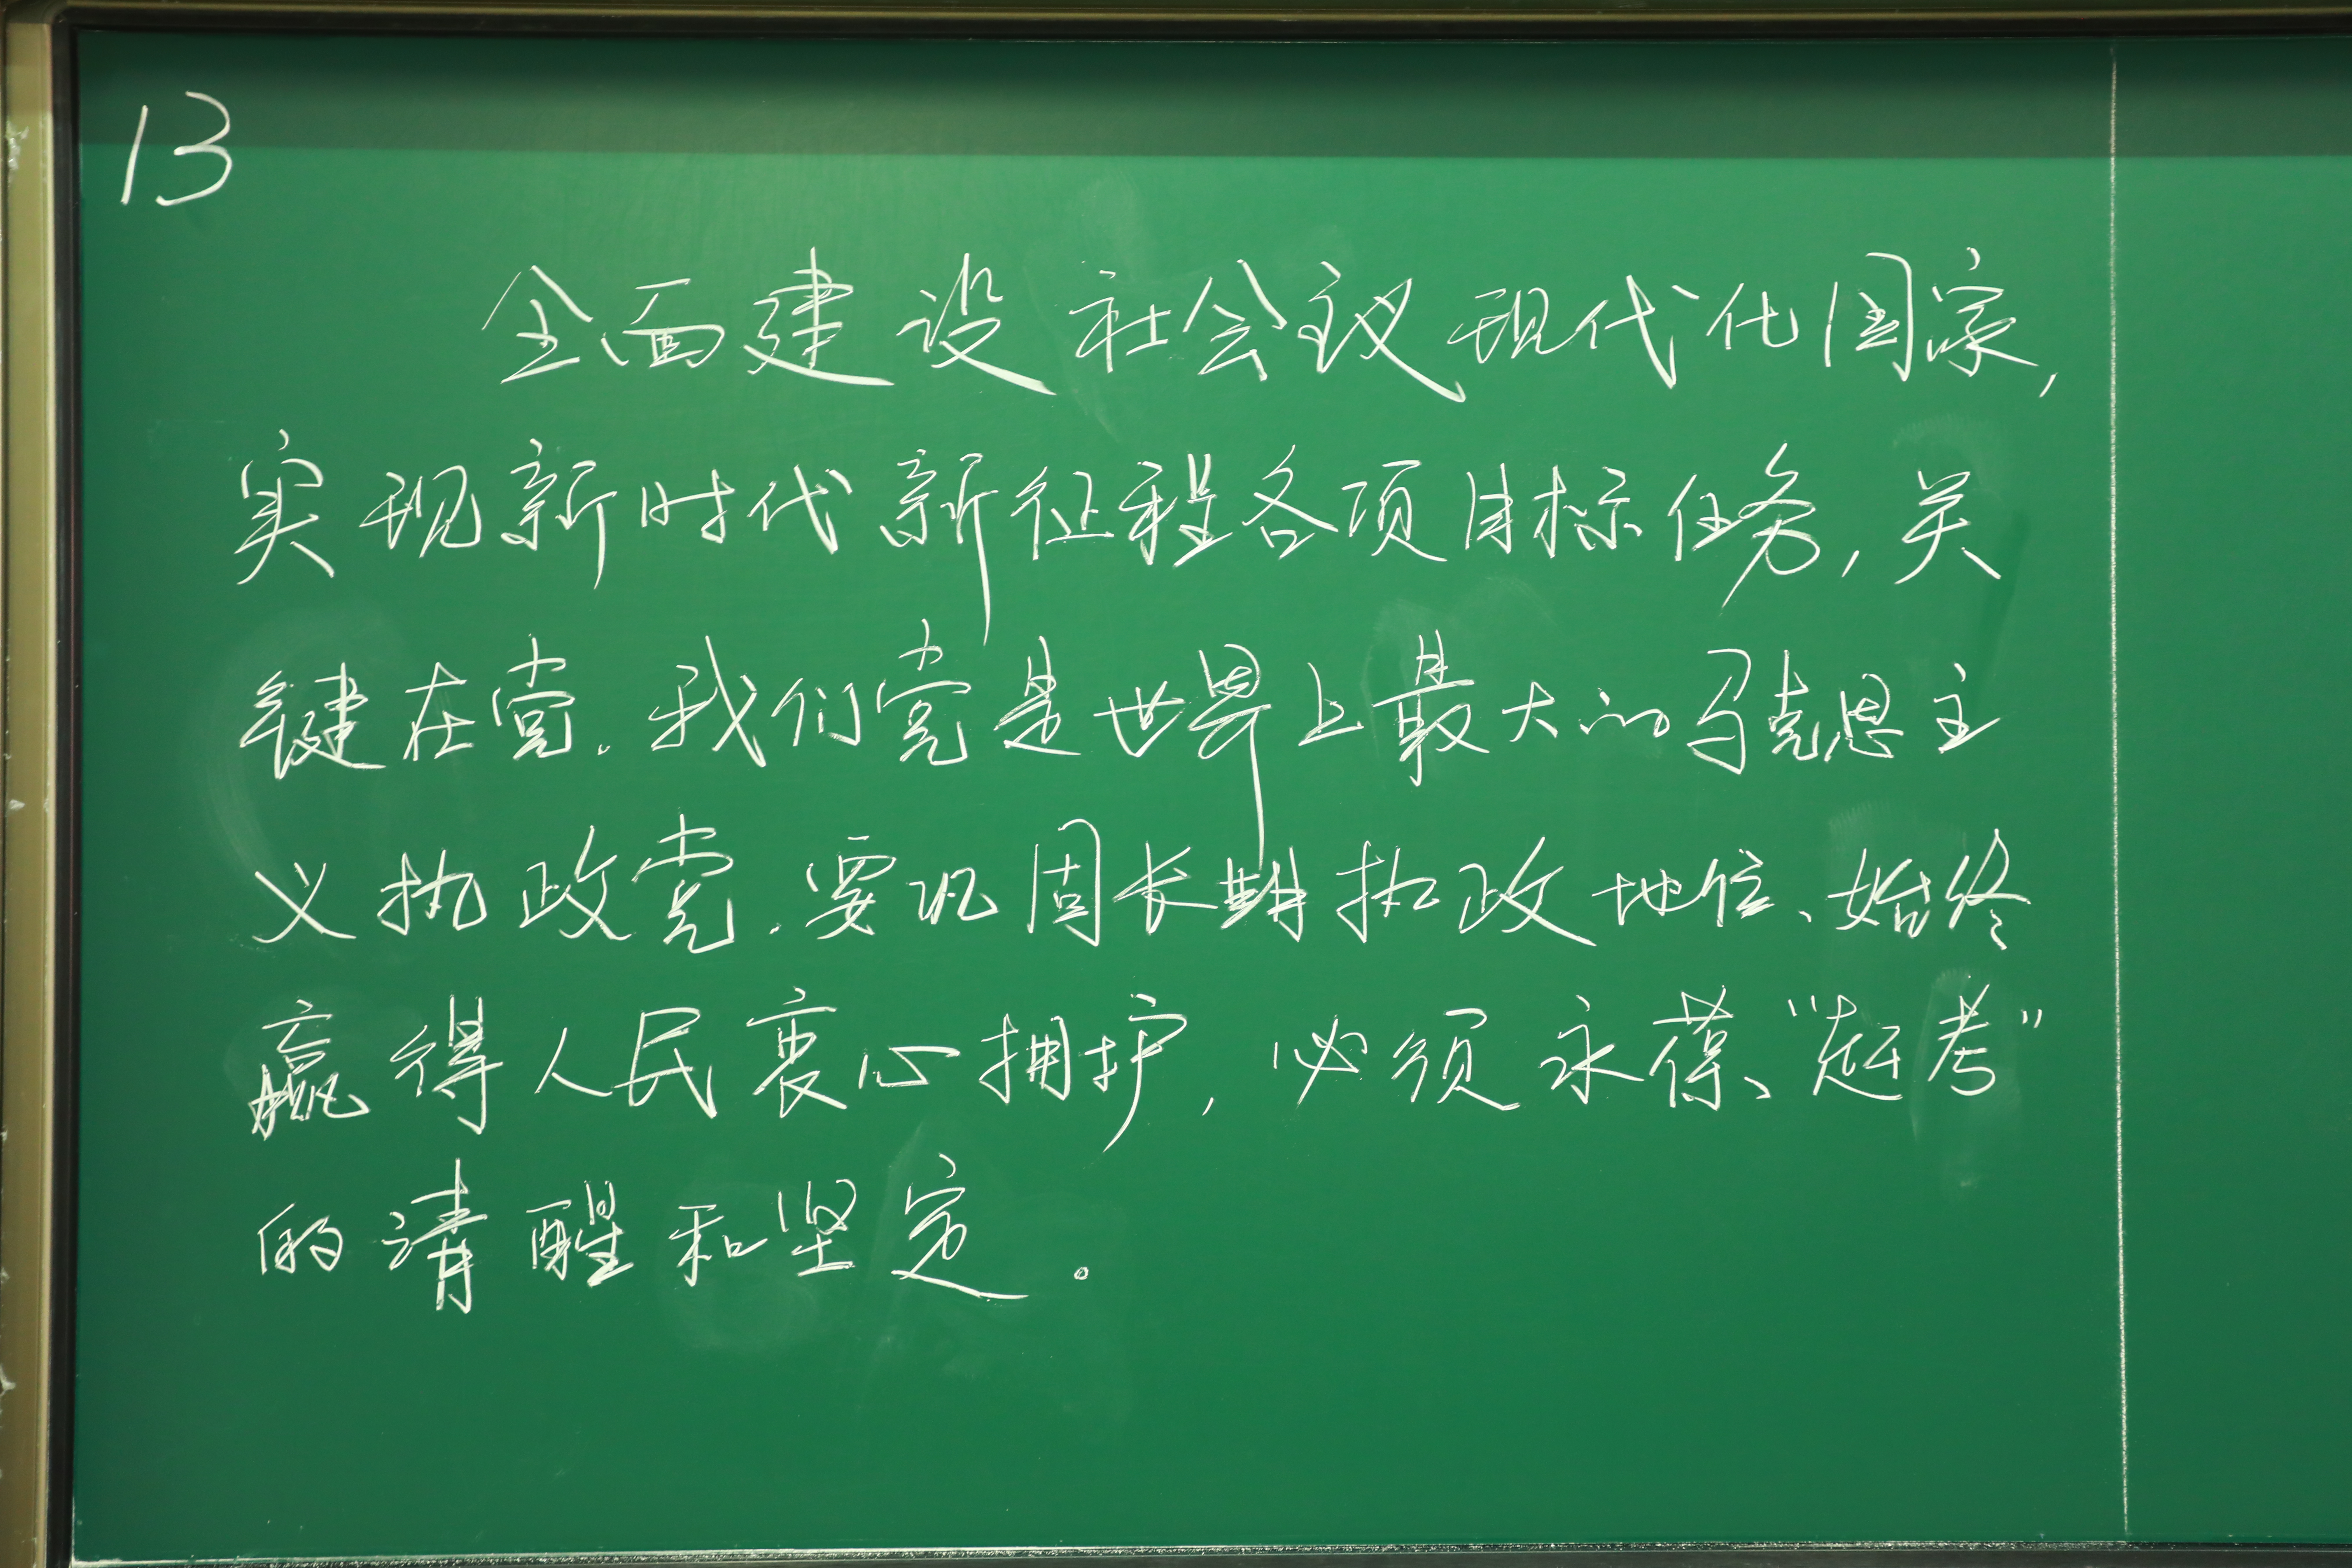 13
全面建设社会主义现代化国家,
实现新时代新征程各项目标任务,关
键在党.我们党是世界上最大的马克思主
义执政党.要巩固长期执政地位、始终
赢得人民衷心拥护,必须永葆、“赶考”
的清醒和坚定。